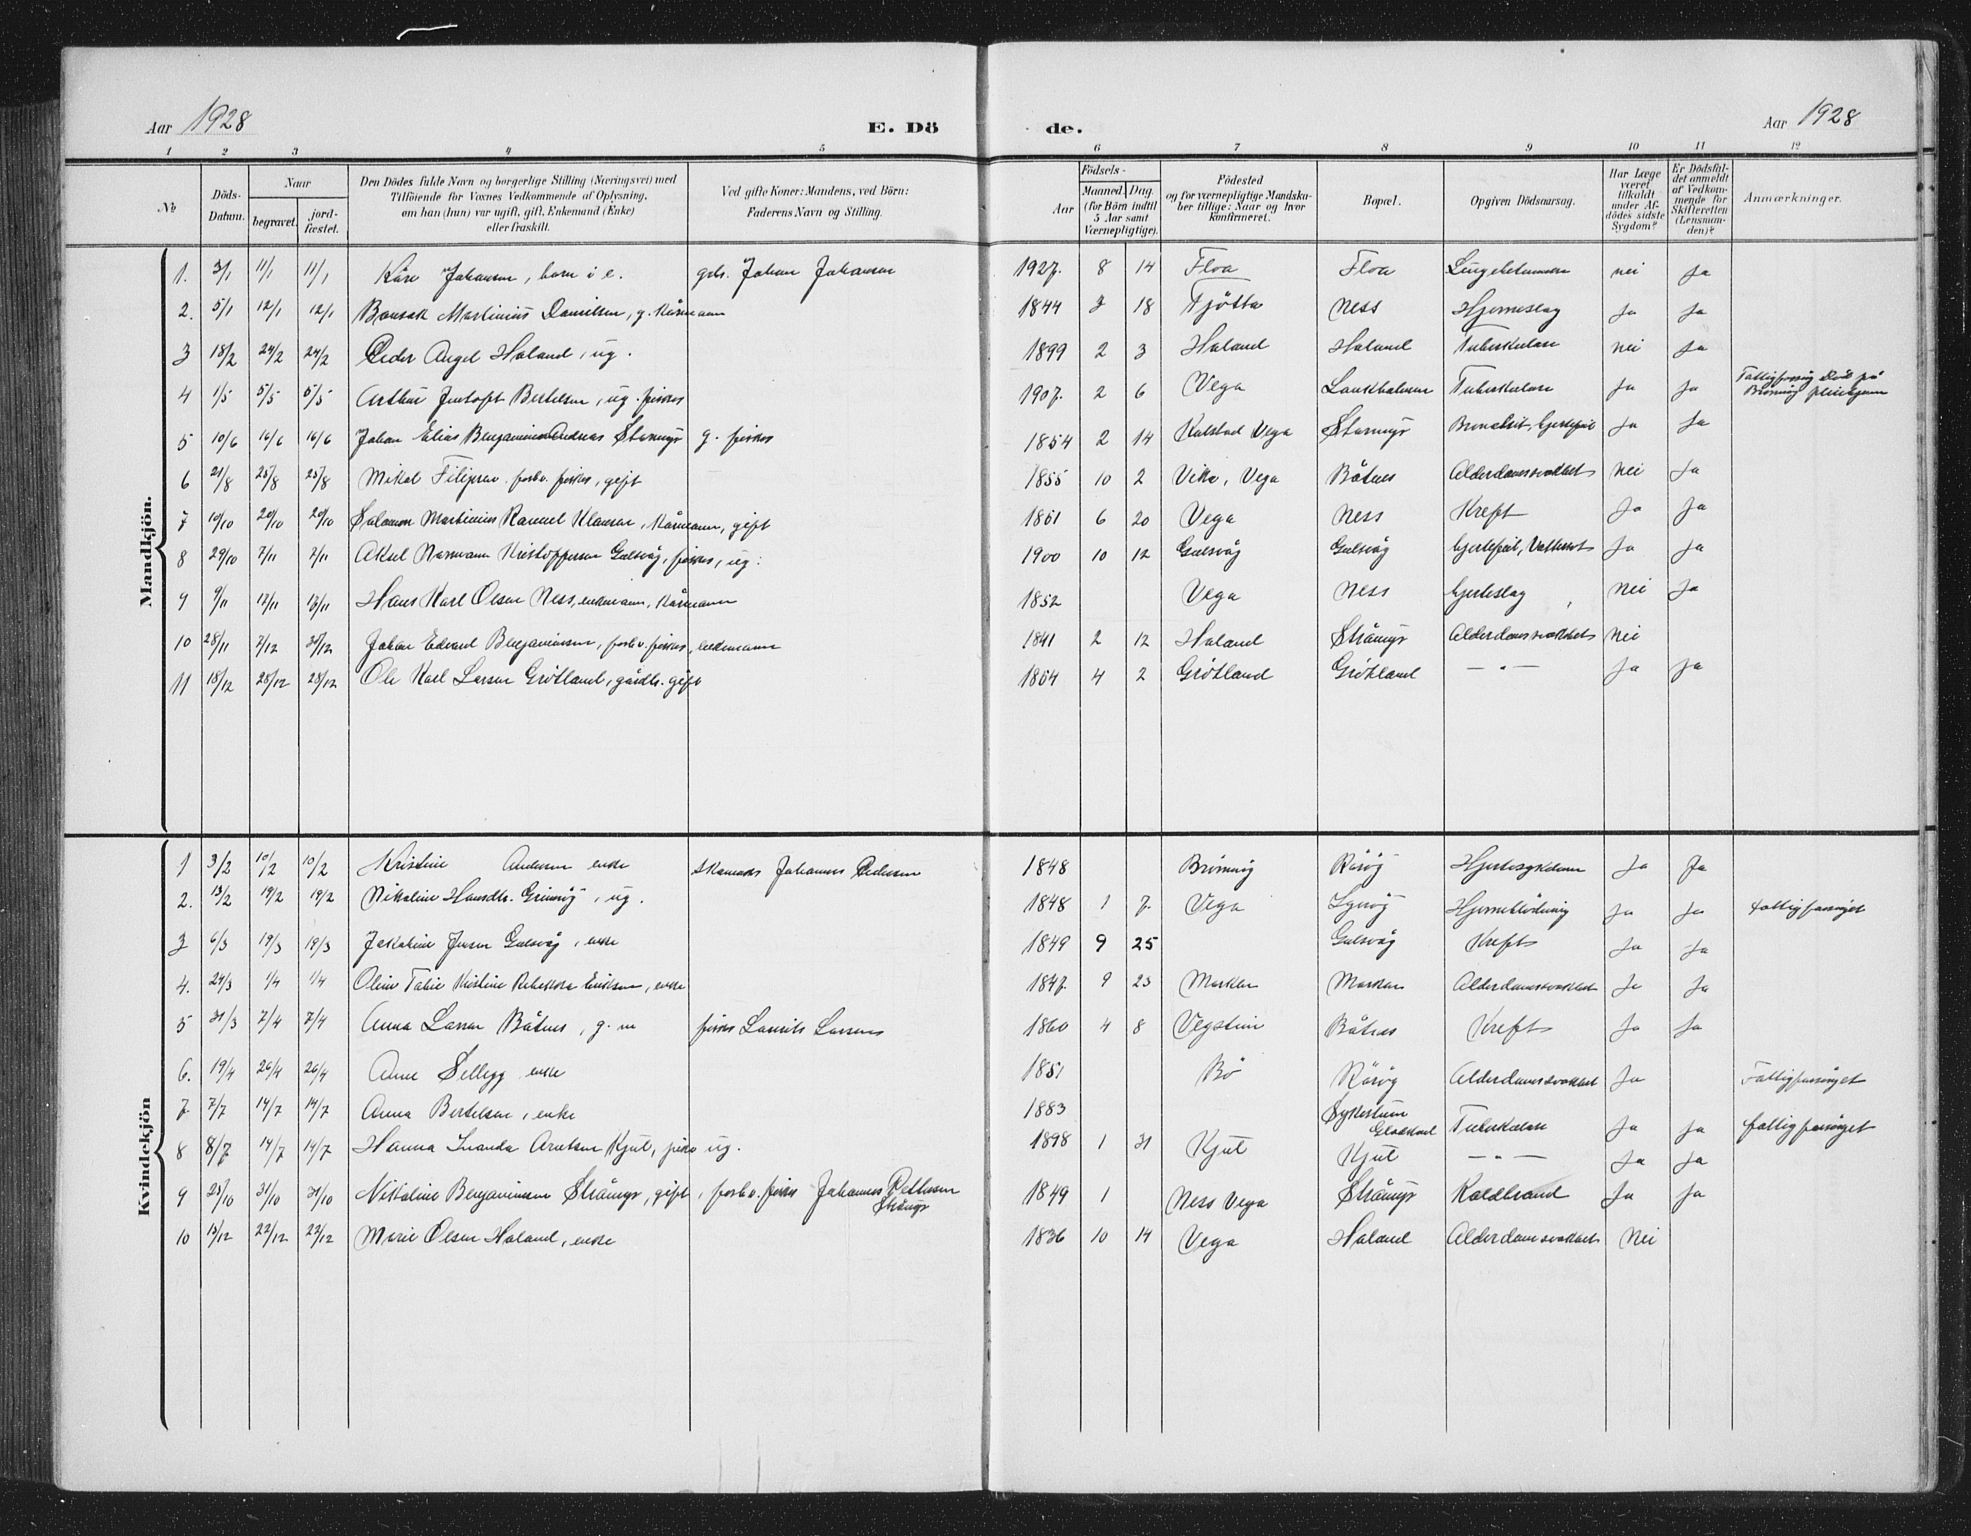 Aar 1928 E. Dö de. Aar 1928
1 2 3 4 5 6 7 8 9 10 11 12
No
Döds-Datum.
Naar
begravet.
jord-fæstet.
Den Dödes fulde Navn og borgerlige Stilling (Næringsvei) med
Tilföiende for Voxnes Vedkommende af Oplysning,
om han (hun) var ugift, gift, Enkemand (Enke)
eller fraskilt.
Ved gifte Koner: Mandens, ved Börn:
Faderens Navn og Stilling.
Födsels-
Aar
Maaned. Dag.
(for Börn indtil
5 Aar samt
Værnepligtige).
Födested
og for værnepligtige Mandska-
ber tillige: Naar og hvor
konfirmeret.
Bopæl.
Opgiven Dödsaarsag.
Har Læge
været
tilkaldt
under Af-
dödes sidste
Sygdom?
Er Dödsfal-
det anmeldt
af Vedkom-
mende for
Skifteretten
(Lensman-
den)?
Anmærkninger.
Mandkjön.
1. 3/1 11/1 11/1 Kåre Johansen, barn i e. gbr. Johan Johansen 1927. 8 14 Floa Floa nei Ja
2. 5/1 12/1 12/1 Martinius Danielsen, g. kårmann 1844 3 18 Tjøtta Ness Hjerneslag Ja Ja
3 18/2 24/2 24/2 Peder Angel Haland, ug. 1899 2 3 Haland Haland Tuberkulose nei Ja
4 1/5 5/5 5/5 Arthur Jentoft Bertelsen, ug. fisker 1907. 2 6 Vega Tuberkulose Ja Ja Død på
5 10/6 16/6 16/6 Johan Elias Benjaminsen Andreas g. fisker 1854 2 14 Kalstad Vega Hjertefeil Ja Ja
6 21/8 25/8 25/8 Mikal forhv. fisker, gift 1855 10 2 Vika, Vega Båtnes Alderdomssvakhet nei Ja
7 10/10 20/10 20/10 Salamon Martinius Klausen, kårmann, gift 1851 6 20 Vega Ness Kreft Ja Ja
8 29/10 7/11 7/11 Aksel Normann Kristoffersen Gulsvåg, fisker, ug. 1900 10 12 Gulsvåg Gulsvåg hjertefeil, Vattersot Ja Ja
9 9/11 13/11 13/11 Hans Karl Olsen Ness, enkemann, kårmann 1852 Vega Ness hjerteslag nei Ja
10 28/11 7/12 30/12 Johan Edvard Benjaminsen, forhv. fisker, enkemann 1841 2 12 Haland Strånys Alderdomssvakhet nei
11 18/12 28/12 28/12 Ole Karl Larsen Grötland, gårdb. gift 1854 4 2 Grötland Grötland — " — Ja Ja
Kvindekjön
1 3/2 10/2 10/2 Kristine Andersen enke Johannes Pedersen 1848 Brönnöy Rörøy Hjertesykdom Ja Ja
2. 13/2 19/2 19/2 Nikoline Hansdtr. ug. 1848 1 7 Vega Hjerneblödning Ja Ja fattigforsörget
3 6/3 19/3 19/3 Jakobine Jensen Gulsvåg, enke 1849 9 25 Gulsvåg Kreft Ja Ja
4. 24/3 1/4 1/4 Oline Tobie Kristine Rebekka Eriksen, enke 1847. 9 23 Marken Marken Alderdomssvakhet Ja Ja
5 31/3 7/4 7/4 Anna Larsen Båtnes, g. m fisker Laurits Larsens 1860 4 8 Vegstein Båtnes Kreft Ja Ja
6. 19/4 26/4 26/4 Anne Sellegg enke 1851 Bö Rörøy Alderdomssvakhet Ja Fattigforsörget
7 7/7 14/7 14/7 Anna Bertelsen, enke 1883 Sykestuen Tuberkulose Ja Ja fattigforsörget
8 8/7 14/7 14/7 Hanna Inanda Arntsen Kjul, ug. 1898 1 31 Kjul Kjul — " — Ja Ja
9 23/10 31/10 31/10 Nikoline Benjaminsen Strånys, gift, forhv. fisker Johannes Pettersen Strånys 1849 1 Ness Vega Strånys Koldbrand Ja Ja
10 13/12 22/12 22/12 Marie Olsen Haland, enke 1836 10 14 Vega Haland Alderdomssvakhet Nei